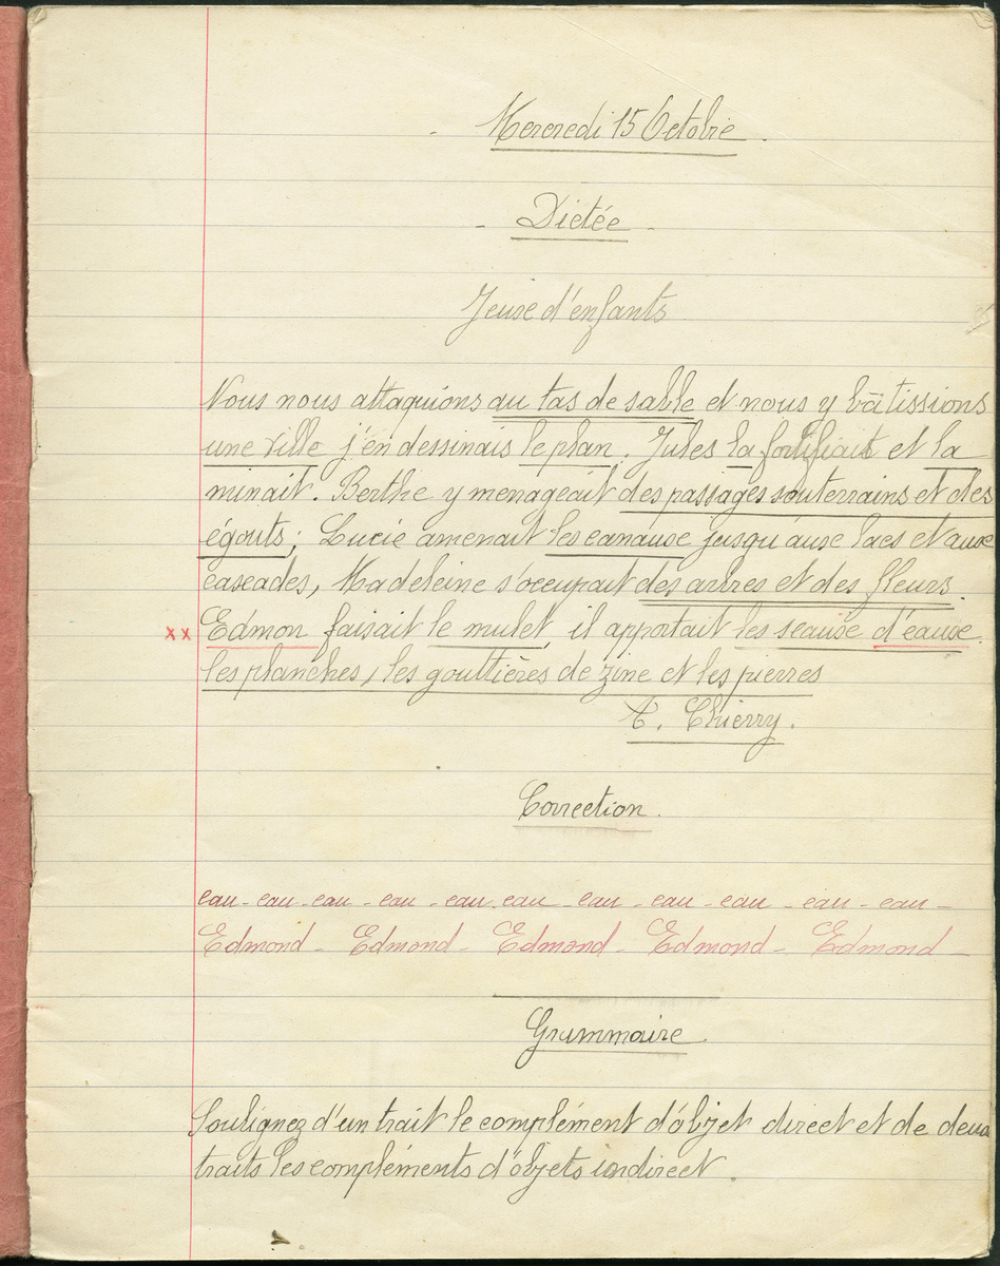 Mercredi 15 Octobre
Dictée
Jeux d'enfants
Nous nous attaquions au tas de sable et nous y bâtissions
une ville j'en dessinais le plan. Jules la fortifiait et la
minait. Berthe y menageait des passages souterrains et des
égouts; Lucie amenait les canaux jusqu'aux lacs et aux
cascades, Madeleine s'occupait des arbres et des fleurs.
xx Edmon faisait le mulet il apportait les seaux d'eaux.
les planches, les gouttières de zinc et les pierres
A. Thierry.
Correction.
eau - eau - eau - eau - eau - eau - eau - eau - eau - eau - eau -
Edmond - Edmond - Edmond - Edmond - Edmond -
Grammaire.
Soulignez d'un trait le complément d'objet direct et de deux
traits les compléments d'objets indirect.